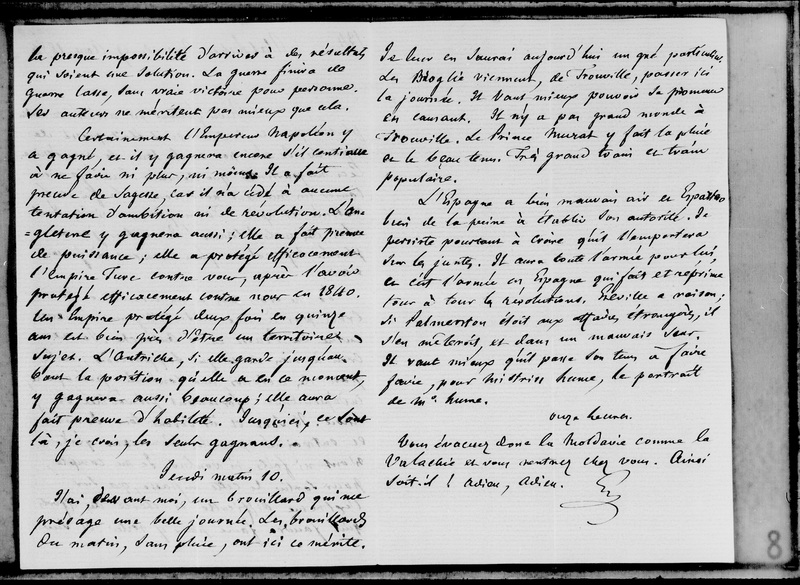 la presque impossibilité d'arriver à des résultats
qui soient une solution. La guerre finira de
guerre lasse, sans vraie victoire pour personne.
Ses auteurs ne méritent pas mieux que cela.
Certainement l'Empereur Napoléon y
a gagné, et il y gagnera encore s'il continue
à ne faire ni plus, ni moins. Il a fait
preuve de sagesse, car il n'a cédé à aucune
tentation d'ambition ni de révolution. L'An
=gleterre y gagnera aussi ; elle a fait preuve
de puissance ; elle a protégé efficacement
l'Empire Turc contre vous, après l'avoir
protégé efficacement contre nous en 1840.
Un Empire protégé deux fois en quinze
ans est bien près d'être un territoire
sujet. L'Autriche, si elle garde jusqu'au
bout la position qu'elle a en ce moment,
y gagnera aussi beaucoup ; elle aura
fait preuve d'habileté. Jusqu'ici, ce sont
là, je crois, les seuls gagnans.
Jeudi matin 10.
J'ai, devant moi, un brouillard qui me
présage une belle journée. Les brouillards
du matin, sans pluie, ont ici ce mérite.
Je leur en saurai aujourd'hui un gré particulier.
Les Broglie viennent, de Trouville, passer ici
la journée. Il vaut mieux pouvoir se promener
en causant. Il n'y a pas grand monde à
Trouville. Le Prince Murat y fait la pluie
et le beau tems. Très grand train et train
populaire.
L'Espagne a bien mauvais air et Espartero
bien de la peine à établir son autorité. Je
persiste pourtant à croire qu'il l'emportera
sur les juntes. Il aura toute l'armée pour lui,
et c'est l'armée en Espagne qui fait et réprime
tour à tour les révolutions. Gréville a raison ;
si Palmerston étoit aux affaires étrangères, il
s'en mêleroit, et dans un mauvais sens.
Il vaut mieux qu'il passe son tems à faire
faire, pour Mistriss Hume, le portrait
de Mr. Hume.
onze heures.
Vous évacuez donc la Moldavie comme la
Valachie et vous rentrez chez vous. Ainsi
soit-il ! adieu, adieu.
8